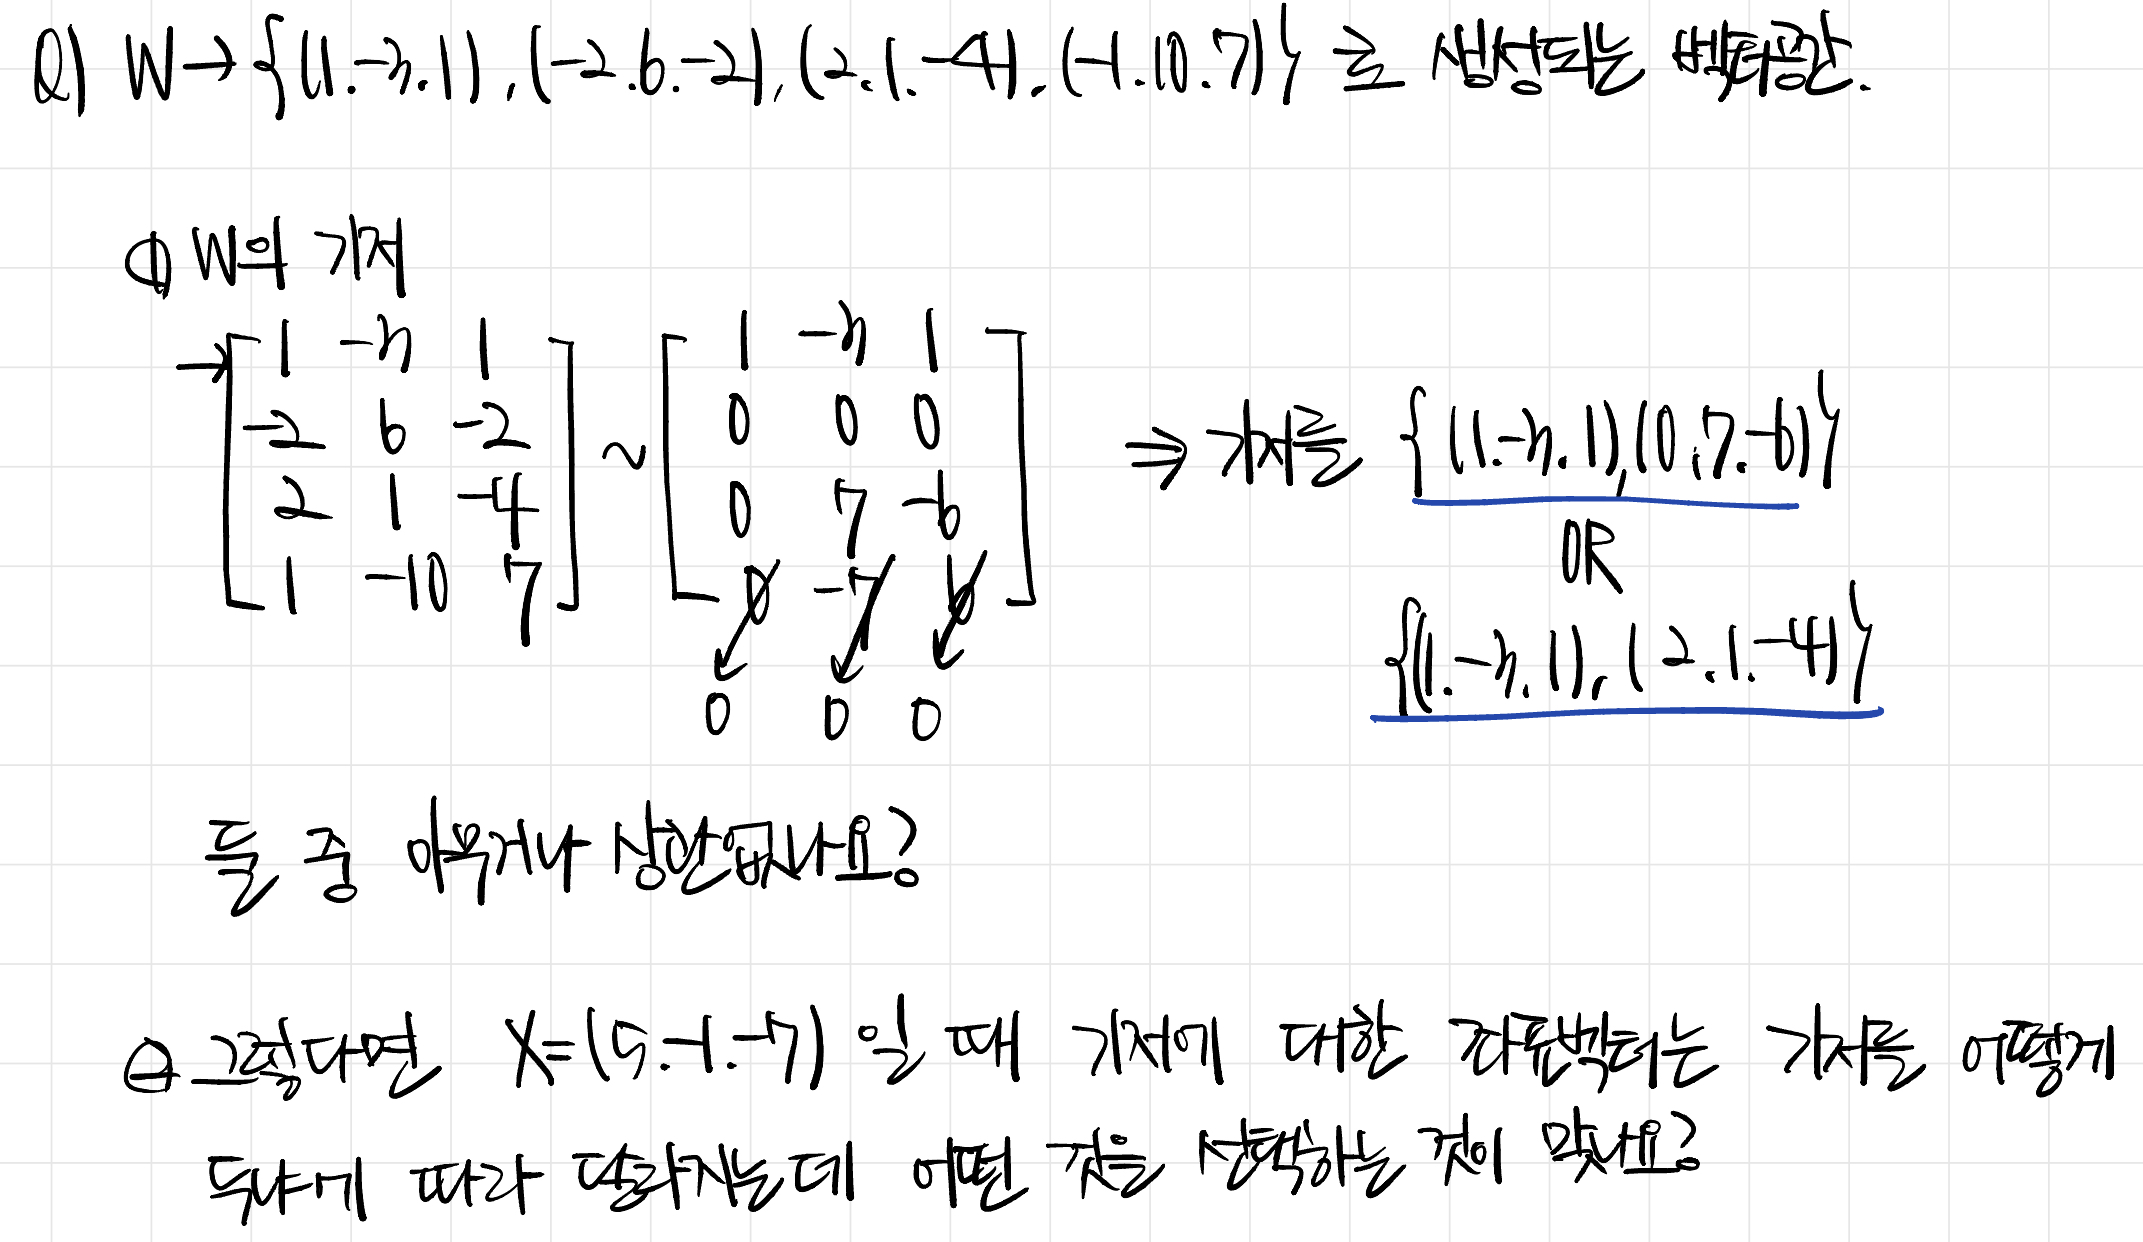 Q) W → {(1.-3.1), (-2.6.-2), (2.1.-4), (-1.10.7)} 로 생성되는 벡터공간.
① W의 기저
→ [1 -3 1] ~ [1 -3 1]
[-2 6 -2] [0 0 0] ⇒ 기저를 {(1.-3.1),(0.7.-6)}
[2 1 -4] [0 7 -6] OR
[1 -10 7] [0 -7 6] {(1.-3.1), (2.1.-4)}
0 0 0
둘 중 아무거나 상관없나요?
② 그렇다면 X=(5.-1.-7) 일 때 기저에 대한 좌표벡터는 기저를 어떻게
두냐에 따라 달라지는데 어떤 것을 선택하는 것이 맞나요?